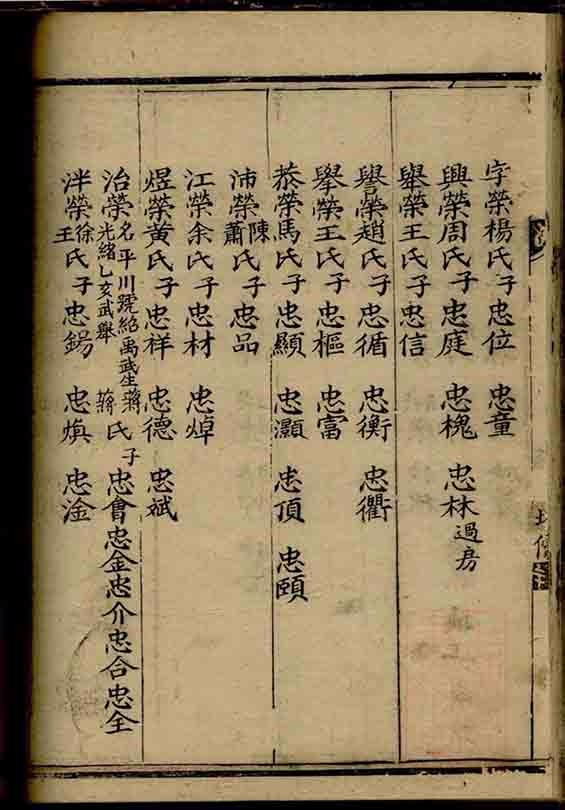 字榮楊氏子忠位 忠童
興榮周氏子忠庭 忠槐 忠林過房
舉榮王氏子忠信
譽榮趙氏子忠循 忠衡 忠衢
擧榮王氏子忠樞 忠富
菾榮馬氏子忠顯 忠灝 忠頂 忠頤
沛榮陳蕭氏子忠品
江榮余氏子忠材 忠焯
煜榮黃氏子忠祥 忠德 忠斌
治榮名平川號紹禹武生光緒乙亥武舉蔣蔣氏子忠會忠金忠介忠合忠全
泮榮徐王氏子忠鍚 忠熉 忠淦